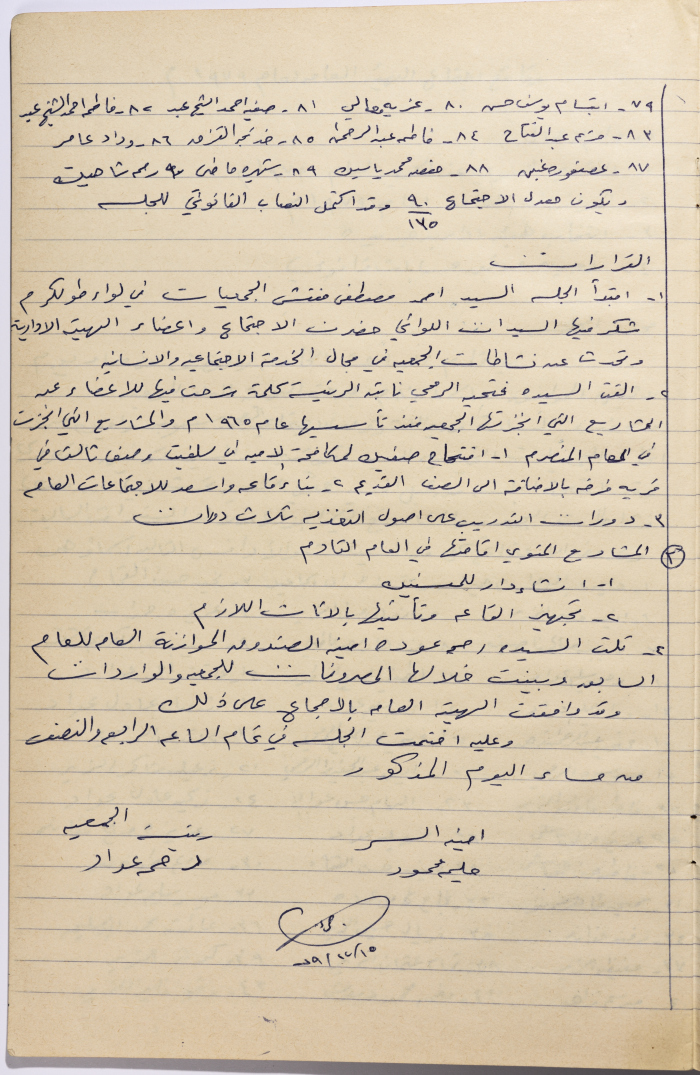 ٧٩- ابتسام يوسف حسن ٨٠- عزيه معالي ٨١- صفيه احمد الشيخ عيد ٨٢- فاطمه احمد الشيخ عيد
٨٣- مريم عبد الفتاح ٨٤- فاطمه عبد الرحمن ٨٥- خديجه القزق ٨٦- وداد عامر
٨٧- عصفوره غيث ٨٨- حفصه محمد ياسين ٨٩- شهيره ماضي ٩٠ رحمه شاهين
ويكون معدل الاجتماع ٩٠/١٧٥ وقد اكتمل النصاب القانوني للجلسه
القرارات
١- ابتدأ الجلسه السيد احمد مصطفى مفتش الجمعيات في لواء طولكرم
شكر فيها السيدات اللواتي حضرن الاجتماع واعضاء الهيئة الادارية
وتحدث عن نشاطات الجمعيه في مجال الخدمة الاجتماعيه والانسانيه
٢- القت السيده فتحيه الرمحي نائبة الرئيسة كلمة شرحت فيها للاعضاء عن
المشاريع التي انجزتها الجمعيه منذ تأسيسها عام ١٩٦٥م والمشاريع التي انجزت
في العام المنصرم ١- افتتاح صفين لمكافحة الاميه في سلفيت وصف ثالث في
قريه فرخه بالاضافة الى الصف القديم ٢- بناء قاعه واسعه للاجتماعات العامه
٣- دورات التدريب على اصول التغذيه ثلاث دورات
٣ المشاريع المنوي اقامتها في العام القادم
١- انشاء دار للمسنين
٢- تجهيز القاعه وتأثيثها بالاثاث اللازم
٤- تلت السيده رحمه عوده امينه الصندوق الموازنة العامه للعام
السابق وبينت خلالها المصروفات للجمعيه والواردات
وقد وافقت الهيئة العامه بالاجماع على ذلك
وعليه اختتمت الجلسه في تمام الساعه الرابعه والنصف
من مساء اليوم المذكور
امينه السر رئيسة الجمعيه
حليمه محمود رحمه عواد
٧٩/١٢/١٥